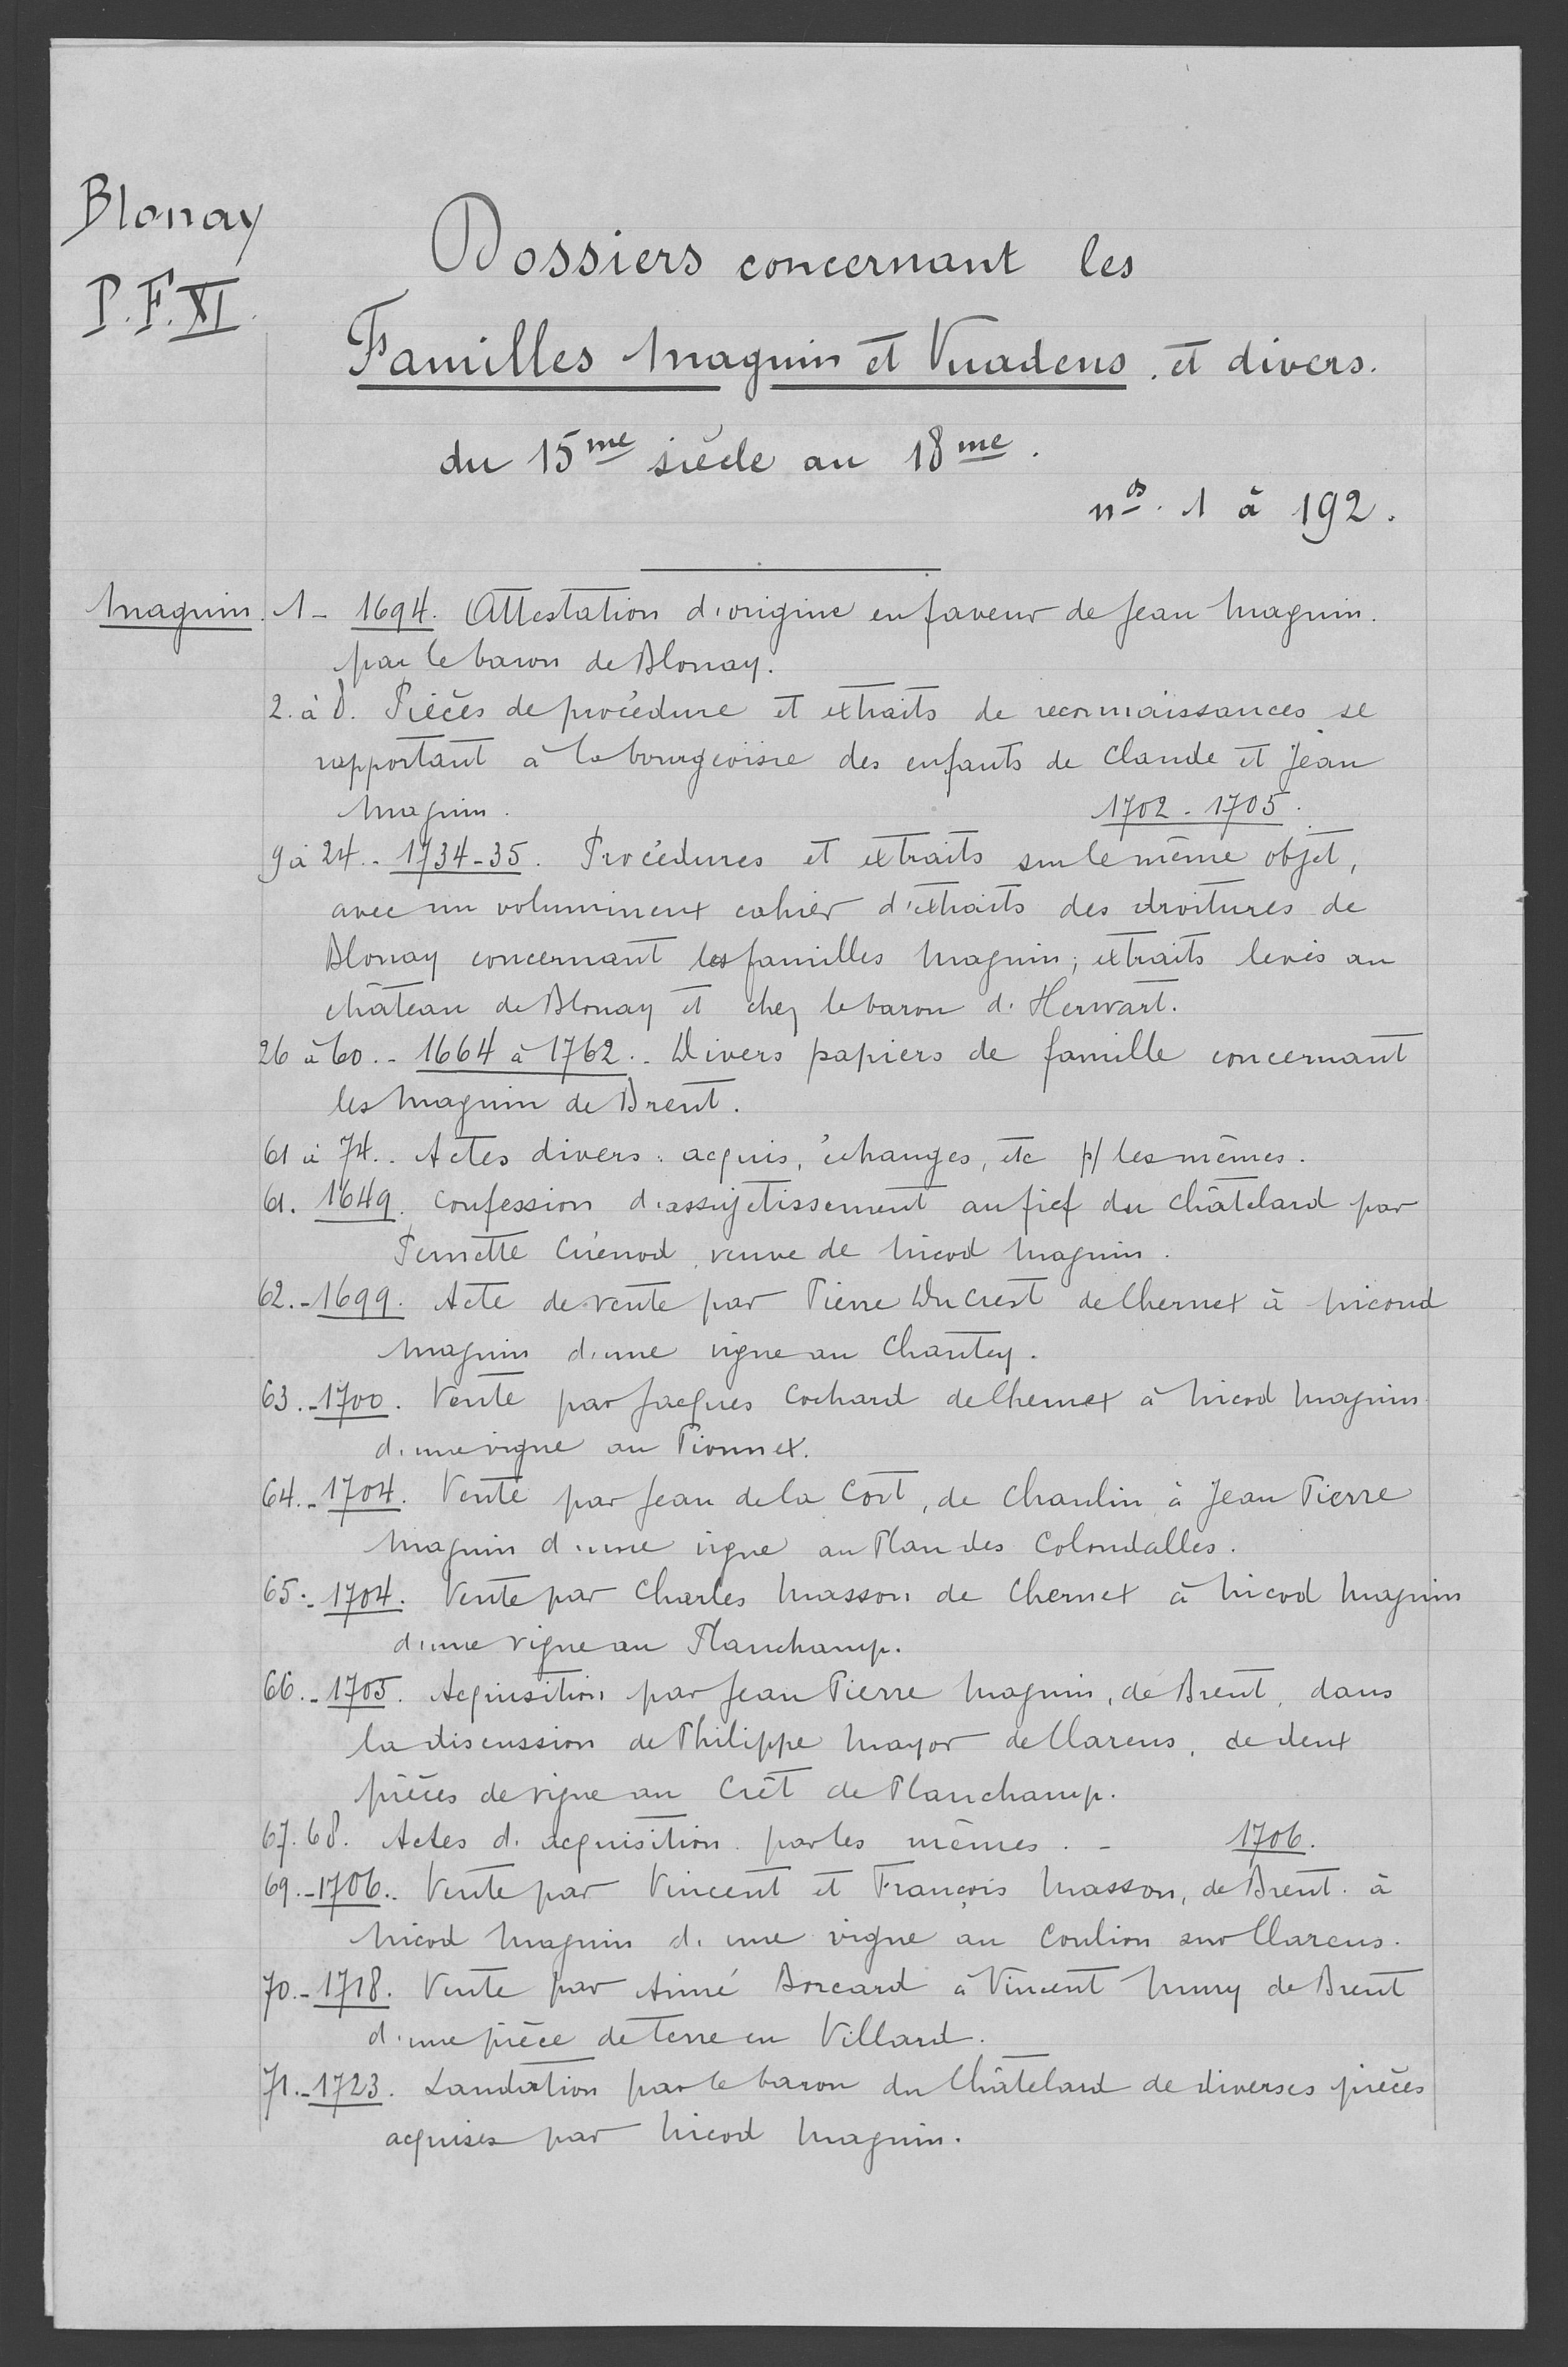 Blonay
P.F. XI.
Dossiers concernant les
Familles Maguin et Vuadens. et divers.
du 15me siècle au 18me.
nos. 1 à 192.
Maguin. 1 - 1694. Attestation d'origine en faveur de Jean Maguin.
par le baron de Blonay.
2. à 8. Pièces de procédure et extraits de reconnaissances se
rapportant à la bourgeoisie des enfants de Claude et Jean
Maguin. 1702 - 1705.
9 à 24. - 1734-35. Procédures et extraits sur le même objet,
avec un volumineux cahier d'extraits des droitures de
Blonay concernant les familles Maguin; extraits levés au
château de Blonay et chez le baron d'Herwart.
26 à 60. - 1664 à 1762. - Divers papiers de famille concernant
les Maguin de Brent.
61 à 74. - Actes divers: acquis, échanges, etc p/ les mêmes.
61. 1649. Confession d'assujetissement au fief du Châtelard par
Pernette Cuénod, veuve de Nicod Maguin.
62. - 1699. Acte de vente par Pierre DuCrest de Chernex à Nicoud
Maguin d'une vigne au Chantey.
63. - 1700. Vente par Jacques Cochard de Chernex à Nicod Maguin
d'une vigne au Pionnex.
64. - 1704. Vente par Jean de la Cort, de Chaulin, à Jean Pierre
Maguin d'une vigne au Plan des Colondalles.
65. - 1704. Vente par Charles Masson de Chernex à Nicod Maguin
d'une vigne au Planchamp.
66. - 1705. Acquisition par Jean Pierre Maguin, de Brent, dans
la discussion de Philippe Mayor de Clarens, de deux
pièces de vigne au Crêt de Planchamp.
67. 68. Actes d'acquisition par les mêmes. - 1706.
69. - 1706. - Vente par Vincent et François Masson, de Brent. à
Nicod Maguin d'une vigne au Coulion sur Clarens.
70. - 1718. Vente par Aimé Borcard à Vincent Mury de Brent
d'une pièce de terre en Villard.
71. - 1723. Laudation par le baron du Châtelard de diverses pièces
acquises par Nicod Maguin.